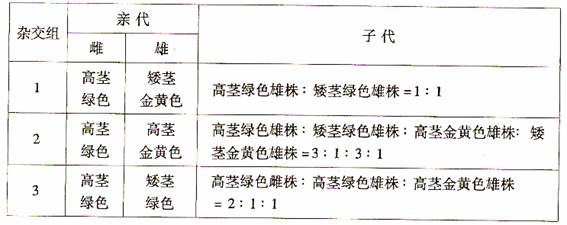 杂交组 亲代 子代
雌 雄
1 高茎 矮茎 高茎绿色雄株：矮茎绿色雄株=1：1
绿色 金黄色
2 高茎 高茎 高茎绿色雄株：矮茎绿色雄株：高茎金黄色雄株：矮
绿色 金黄色 茎金黄色雄株=3：1：3：1
3 高茎 矮茎 高茎绿色雌株：高茎绿色雄株：高茎金黄色雄株
绿色 绿色 =2：1：1